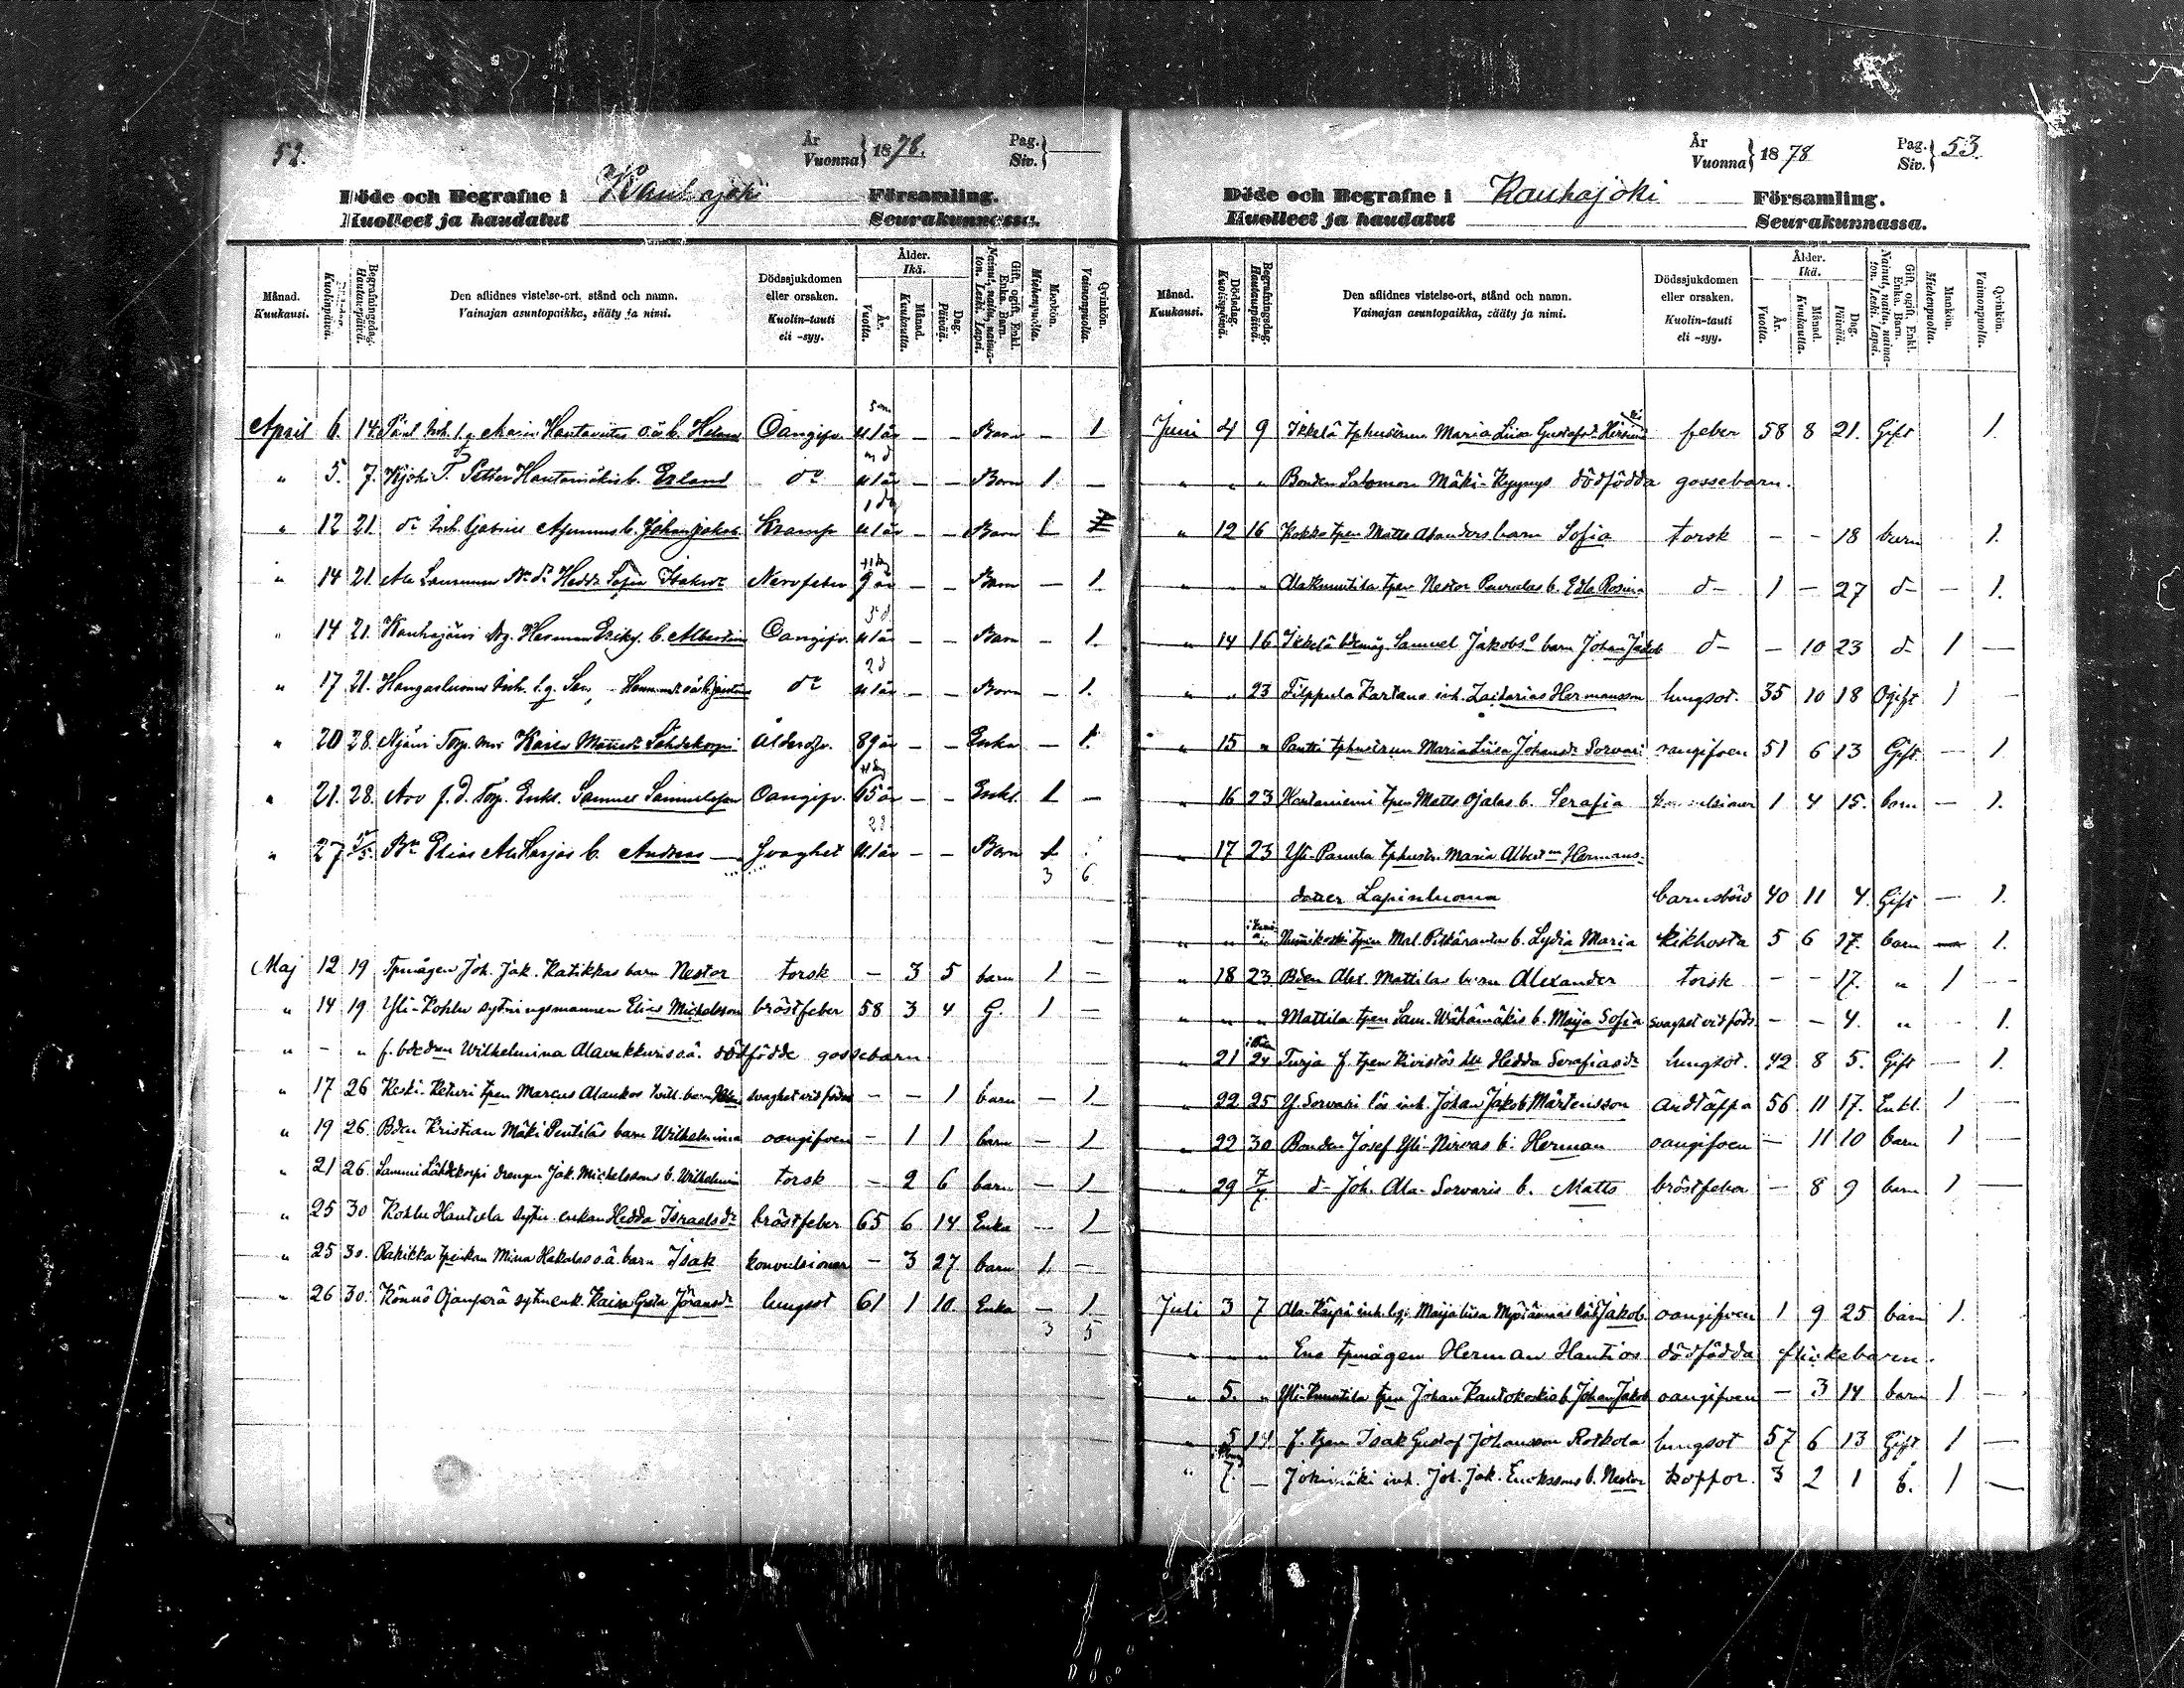 52.
År
Vuonna } 1878.
Pag.
Siv. }
Döde och Begrafne i Kauhajoki Församling.
Kuolleet ja haudatut Seurakunnassa.
Månad. Kuukausi.
Kuolinpäivä.
Begrafningsdag. Hautauspäivä.
Den aflidnes vistelse-ort, stånd och namn.
Vainajan asuntopaikka, sääty ja nimi.
Dödssjukdomen eller orsaken.
Kuolin-tauti eli -syy.
Ålder. Ikä.
År. Vuotta.
Månad. Kuukautta.
Dag. Päivää.
Gift, ogift, Enkl. Enka. Barn.
Nainut, naitu, naimaton. Leski. Lapsi.
Mankön. Miehenpuolta.
Qvinkön. Vaimonpuolta.
April 6. 14. Inh. Oangifv. u 1 år — — Barn — 1
" 5. 7. Petter Hautamäkis b. Erland do u 1 år — — Barn 1.
" 12 21. do Inh. Gabriel b. Johan Jakob Kramp u 1 år — — Barn 1
" 14 21. Ala Hedda Sofia Nervfeber 9 år — — Barn — 1.
" 14 21. Kauhajärvi Herman b. Albertina Oangifv. u 1 år — — Barn — 1.
" 17 21. Hangasluoma Inh. do u 1 år — — Barn — 1.
" 20 28. Torp. Lähdekorpi Ålderdv. 89 år — — Enka — 1.
" 21. 28. Aro f.d. Torp. Enkl. Samuel Samuelsson Oangifv. 65 år — — Enkl. 1 —
" 27 5/5. Bn Elias Ala Harjas b. Andreas — Svaghet u. 1 år — — Barn 1
3 6
Maj 12 19 Tpmågen Joh. Jak. Katikkas barn Nestor torsk — 3 5 barn 1 —
" 14 19 Yli-Kohlu sytningsmannen Elias Michelsson bröstfeber 58 3 4 G. 1 —
" — " f. bdedren Wilhelmina o.ä. dödfödde gossebarn
" 17 26 Keski-Keturi tpen Marcus Alaukos tvill. barn svaghet vid födsn — — 1 barn — 1
" 19 26. Bden Kristian Mäki Pentiläs barn Wilhelmina oangifven — 1 1 barn — 1
" 21 26. Sammi Lähdekorpi drengen Jak. Michelssons b. Wilhelmin torsk — 2 6 barn — 1
" 25 30 Kohlu Hautala sytn. enkan Hedda Israelsdr bröstfeber 65 6 14 Enka — 1
" 25 30. Mina Hakalas o.ä. barn Isak konvulsioner — 3 27 barn 1. —
" 26 30. Könnö Ojanperä sytn enk. Kaisa Greta Jöransdr lungsot 61 1 10. Enka — 1
3 5
År
Vuonna } 1878
Pag.
Siv. } 53.
Döde och Begrafne i Kauhajoki Församling.
Kuolleet ja haudatut Seurakunnassa.
Månad. Kuukausi.
Dödsdag. Kuolinpäivä.
Begrafningsdag. Hautauspäivä.
Den aflidnes vistelse-ort, stånd och namn.
Vainajan asuntopaikka, sääty ja nimi.
Dödssjukdomen eller orsaken.
Kuolin-tauti eli -syy.
Ålder. Ikä.
År. Vuotta.
Månad. Kuukautta.
Dag. Päivää.
Gift, ogift, Enkl. Enka. Barn.
Nainut, naitu, naimaton. Leski. Lapsi.
Mankön. Miehenpuolta.
Qvinkön. Vaimonpuolta.
Juni 4 9 Ikkelä tphustrun Maria Liisa Gustafsdr feber 58 8 21. Gift 1.
" " " Bonden Salomon Mäki-Kyynys dödfödda gossebarn.
" 12 16 Kokko tpen Matts barn Sofia torsk — — 18 barn 1.
" " " Alaknuutila tpen Nestor b. Edla Rosina d— 1 — 27 d— — 1.
" 14 16 Ikkelä bdemåg. Samuel Jakobs barn Johan Jakob d— — 10 23 d— 1 —
" " 23 Filppula Kartano inh. Zackarias Hermansson lungsot. 35 10 18 Ogift 1 —
" 15 " Pantti tphustrun Maria Liisa Johansdr Sorvari oangifven 51 6 13 Gift. — 1.
" 16 23 Hautaniemi tpen Matts Ojalas b. Serafia konvulsioner 1 4 15. barn — 1.
" 17 23 Yli-Panula tphustr. Maria Albertina Hermans-
dotter Lapinluoma barnsbörd 40 11 4. Gift — 1.
" " Nummikoski tpen Mal. Pitkärantas b. Lydia Maria kikhosta 5 6 17. barn — 1.
" 18 23 Bden Alex. Mattilas barn Alexander torsk — — 17. " 1 —
" " " Mattila tpen Sam. Wähämäkis b. Maija Sofia svaghet vid föds. — — 4. " — 1.
" 21 24 Turja f. tpen Kivistös Hedda Serafiasdr lungsot. 42 8 5. Gift — 1.
" 22 25 Y. Sorvari lös inh. Johan Jakob Mårtensson andtäppa 56 11 17. Enkl 1 —
" 22 30 Bonden Josef Yli-Nirvas b. Herman oangifven — 11 10 barn 1 —
" 29 7/7 d— Joh. Ala-Sorvaris b. Matts bröstfeber — 8 9 barn 1 —
Juli 3 7 Ala-Käspä inh. Maija Liisa Jakob oangifven 1 9 25 barn 1.
" " " Eno tpmågen Herman Hautios dödfödda flickebarn.
" 5. " Yli-Knuutila tpen Johan Kautokoskis b. Johan Jakob oangifven — 3 14 barn 1 —
" 5 14 f. tpen Isak Gustaf Johansson Rotkola lungsot 57 6 13 Gift 1 —
" 7. — Jokimäki inh. Joh. Jak. Erikssons b. Nestor koppor. 3 2 1 b. 1 —